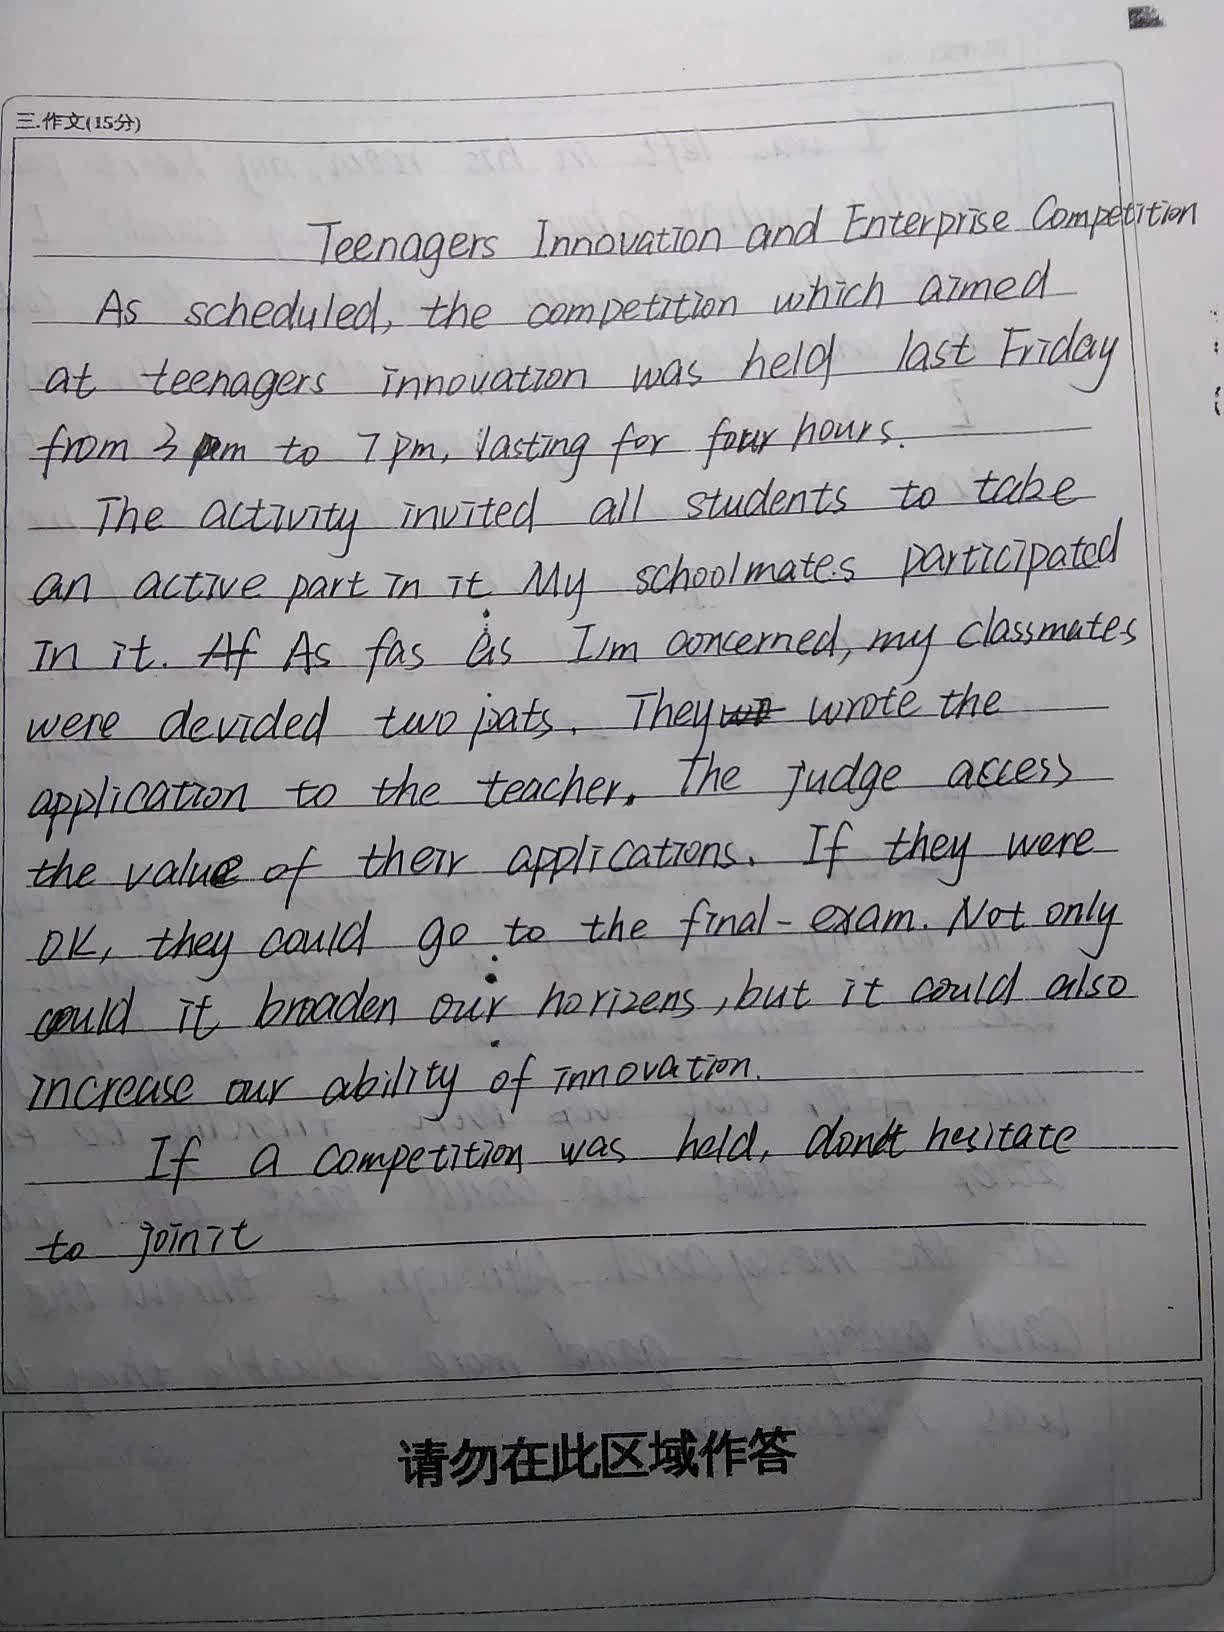 三.作文(15分)
Teenagers Innovation and Enterprise Competition
As scheduled, the competition which aimed
at teenagers innovation was held last Friday
from 3 pm to 7 pm, lasting for four hours.
The activity invited all students to take
an active part in it. My schoolmates participated
in it. Af As fas as I'm concerned, my classmates
were devided two pats. They wrote the
application to the teacher. The judge access
the value of their applications. If they were
OK, they could go to the final-exam. Not only
could it broaden our horizens, but it could also
increase our ability of innovation.
If a competition was held, don't hesitate
to join it
请勿在此区域作答